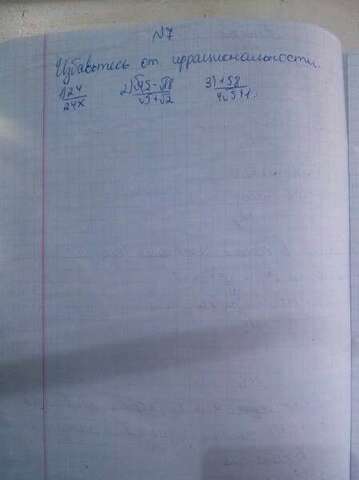 №7
Избавьтесь от иррациональности.
1) 24/24x 2) √45-√18/√5+√2 3) 158/4√5+1.